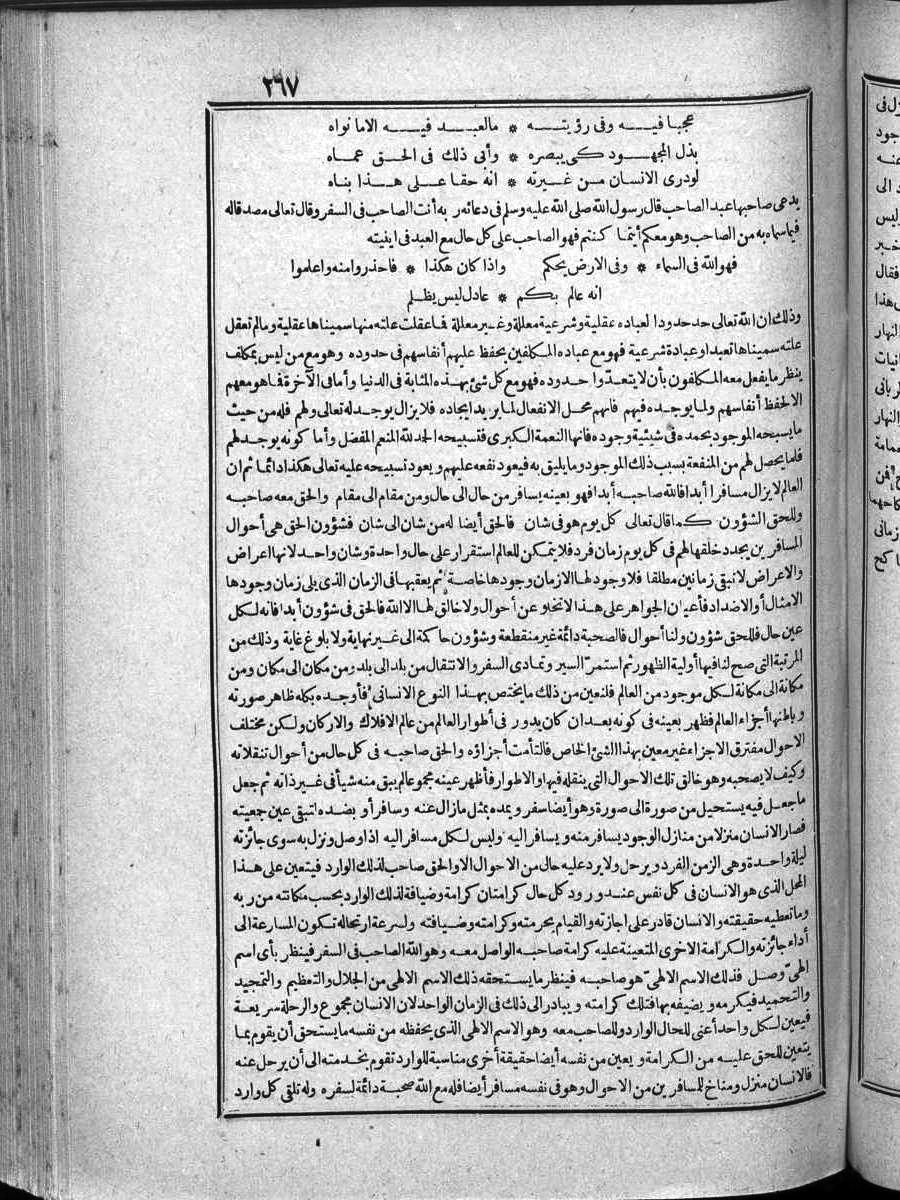 ٢٦٧
عجبا فيه وفي رؤيته * ما لعبد فيه الا ما نواه
بذل المجهود كي يبصره * وأبى ذلك في الحق عماه
لو درى الانسان من غيرته * انه حقا على هذا بناه
يدعى صاحبها عبد الصاحب قال رسول الله صلى الله عليه وسلم في دعائه ربه أنت الصاحب في السفر وقال تعالى مصدقاله
فيما سماه به من الصاحب وهو معكم أينما كنتم فهو الصاحب على كل حال مع العبد في اينيته
فهو الله في السماء * وفي الارض يحكم واذا كان هكذا * فاحذروا منه واعلموا
انه عالم بكم * عادل ليس يظلم
وذلك ان الله تعالى حد حدودا لعباده عقلية وشرعية معللة وغير معللة فما عقلت علته منها سميناها عقلية وما لم تعقل
علته سميناها تعبدا وعبادة شرعية فهو مع عباده المكلفين يحفظ عليهم أنفاسهم في حدوده وهو مع من ليس بمكلف
ينظر ما يفعل معه المكلفون بأن لا يتعدوا حدوده فهو مع كل شئ بهذه المثابة في الدنيا وأما في الآخرة فما هو معهم
الا لحفظ أنفاسهم ولما يوجده فيهم فانهم محل الانفعال لما يريد ايجاده فلا يزال يوجد له تعالى ولهم فله من حيث
ما يسبحه الموجود بحمده في شيئية وجوده فانها النعمة الكبرى فتسبيحه الحمد لله المنعم المفضل وأما كونه يوجد لهم
فلما يحصل لهم من المنفعة بسبب ذلك الموجود وما يليق به فيعود نفعه عليهم ويعود تسبيحه عليه تعالى هكذا دائما ثم ان
العالم لا يزال مسافرا أبدا فالله صاحبه أبدا فهو بعينه يسافر من حال الى حال ومن مقام الى مقام والحق معه صاحبه
وللحق الشؤون كما قال تعالى كل يوم هو في شان فالحق أيضا له من شان الى شان فشؤون الحق هي أحوال
المسافرين يجدد خلقها لهم في كل يوم زمان فرد فلا يتمكن للعالم استقرار على حال واحدة وشان واحد لانها اعراض
والاعراض لا تبقى زمانين مطلقا فلا وجود لها الا زمان وجودها خاصة ثم يعقبها في الزمان الذي يلي زمان وجودها
الامثال أو الاضداد فأعيان الجواهر على هذا لا تخلو عن أحوال ولا خالق لها الا الله فالحق في شؤون أبدا فانه لكل
عين حال فللحق شؤون ولنا أحوال فالصحبة دائمة غير منقطعة وشؤون حاكمة الى غير نهاية ولا بلوغ غاية وذلك من
المرتبة التي صح لنا فيها أولية الظهور ثم استمر السير وتمادى السفر والانتقال من بلد الى بلد ومن مكان الى مكان ومن
مكانة الى مكانة لكل موجود من العالم فلنعين من ذلك ما يختص بهذا النوع الانساني فأوجده بكله ظاهر صورته
وباطنها أجزاء العالم فظهر بعينه في كونه بعد ان كان يدور في أطوار العالم من عالم الافلاك والاركان ولكن مختلف
الاحوال مفترق الاجزاء غير معين بهذا الشئ الخاص فالتأمت أجزاؤه والحق صاحبه في كل حال من أحوال تنقلاته
وكيف لا يصحبه وهو خالق تلك الاحوال التي ينقله فيها والاطوار فأظهر عينه مجموعا لم يبق منه شيأ في غير ذاته ثم جعل
ما جعل فيه يستحيل من صورة الى صورة وهو أيضا سفر ويمده بمثل ما زال عنه وسافر أو بضده لتبقى عين جمعيته
فصار الانسان منزلا من منازل الوجود يسافر منه ويسافر اليه وليس لكل مسافر اليه اذا وصل ونزل به سوى جائزته
ليلة واحدة وهى الزمن الفرد ويرحل ولا يرد عليه حال من الاحوال الا والحق صاحب لذلك الوارد فيتعين على هذا
المحل الذي هو الانسان في كل نفس عند ورود كل حال كرامتان كرامة وضيافة لذلك الوارد بحسب مكانته من ربه
وما تعطيه حقيقته والانسان قادر على اجازته والقيام بحرمته وكرامته وضيافته ولسرعة ارتحاله تكون المسارعة الى
أداء جائزته والكرامة الاخرى المتعينة عليه كرامة صاحبه الواصل معه وهو الله الصاحب في السفر فينظر بأي اسم
الهي وصل فذلك الاسم الالهي هو صاحبه فينظر ما يستحقه ذلك الاسم الالهي من الجلال والتعظيم والتمجيد
والتحميد فيكرمه ويضيفه بها فتلك كرامته ويبادر الى ذلك في الزمان الواحد لان الانسان مجموع والرحلة سريعة
فيعين لكل واحد أعني للحال الوارد وللصاحب معه وهو الاسم الالهي الذي يحفظه من نفسه ما يستحق أن يقوم بما
يتعين للحق عليه من الكرامة ويعين من نفسه أيضا حقيقة أخرى مناسبة للوارد تقوم بخدمته الى أن يرحل عنه
فالانسان منزل ومناخ للمسافرين من الاحوال وهو في نفسه مسافر أيضا فله مع الله صحبة دائمة لسفره وله تلقي كل وارد